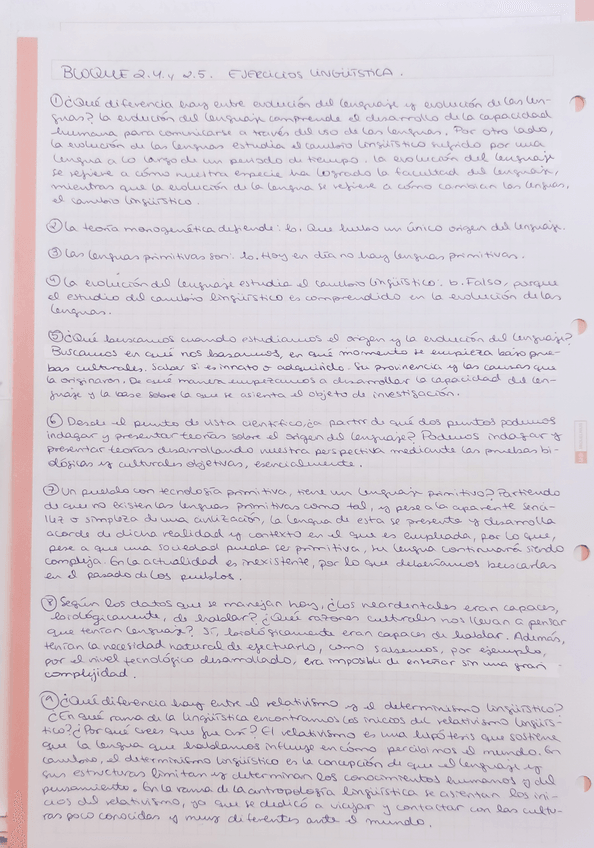 BLOQUE 2.4. y 2.5. EJERCICIOS LINGÜÍSTICA.
① ¿Qué diferencia hay entre evolución del lenguaje y evolución de las len-
guas? La evolución del lenguaje comprende el desarrollo de la capacidad
humana para comunicarse a través del uso de las lenguas. Por otro lado,
la evolución de las lenguas estudia el cambio lingüístico sufrido por una
lengua a lo largo de un periodo de tiempo. La evolución del lenguaje
se refiere a cómo nuestra especie ha logrado la facultad del lenguaje,
mientras que la evolución de la lengua se refiere a cómo cambian las lenguas,
el cambio lingüístico.
② La teoría monogenética defiende: b. Que hubo un único origen del lenguaje.
③ Las lenguas primitivas son: b. Hoy en día no hay lenguas primitivas.
④ La evolución del lenguaje estudia el cambio lingüístico: b. Falso, porque
el estudio del cambio lingüístico es comprendido en la evolución de las
lenguas.
⑤ ¿Qué buscamos cuando estudiamos el origen y la evolución del lenguaje?
Buscamos en qué nos basamos, en qué momento se empieza bajo prue-
bas culturales. Saber si es innato o adquirido. Su provinencia y las causas que
la originaron. De qué manera empezamos a desarrollar la capacidad del len-
guaje y la base sobre la que se asienta el objeto de investigación.
⑥ Desde el punto de vista científico, ¿a partir de qué dos puntos podemos
indagar y presentar teorías sobre el origen del lenguaje? Podemos indagar y
presentar teorías desarrollando nuestra perspectiva mediante las pruebas bi-
ológicas y culturales objetivas, esencialmente.
⑦ Un pueblo con tecnología primitiva, tiene un lenguaje primitivo? Partiendo
de que no existen las lenguas primitivas como tal, y pese a la aparente senci-
llez o simpleza de una civilización, la lengua de esta se presenta y desarrolla
acorde de dicha realidad y contexto en el que es empleada, por lo que,
pese a que una sociedad pueda ser primitiva, su lengua continuará siendo
compleja. En la actualidad es inexistente, por lo que deberíamos buscarlas
en el pasado de los pueblos.
⑧ Según los datos que se manejan hoy, ¿los neardentales eran capaces,
biológicamente, de hablar? ¿Qué razones culturales nos llevan a pensar
que tenían lenguaje? Sí, biológicamente eran capaces de hablar. Además,
tenían la necesidad natural de efectuarlo, como sabemos, por ejemplo,
por el nivel tecnológico desarrollado, era imposible de enseñar sin una gran
complejidad.
⑨ ¿Qué diferencia hay entre el relativismo y el determinismo lingüístico?
¿En qué rama de la lingüística encontramos los inicios del relativismo lingüís-
tico? ¿Por qué crees que fue así? El relativismo es una hipótesis que sostiene
que la lengua que hablamos influye en cómo percibimos el mundo. En
cambio, el determinismo lingüístico es la concepción de que el lenguaje y
sus estructuras limitan y determinan los conocimientos humanos y del
pensamiento. En la rama de la antropología lingüística se asientan los ini-
cios del relativismo, ya que se dedicó a viajar y contactar con las cultu-
ras poco conocidas y muy diferentes ante el mundo.